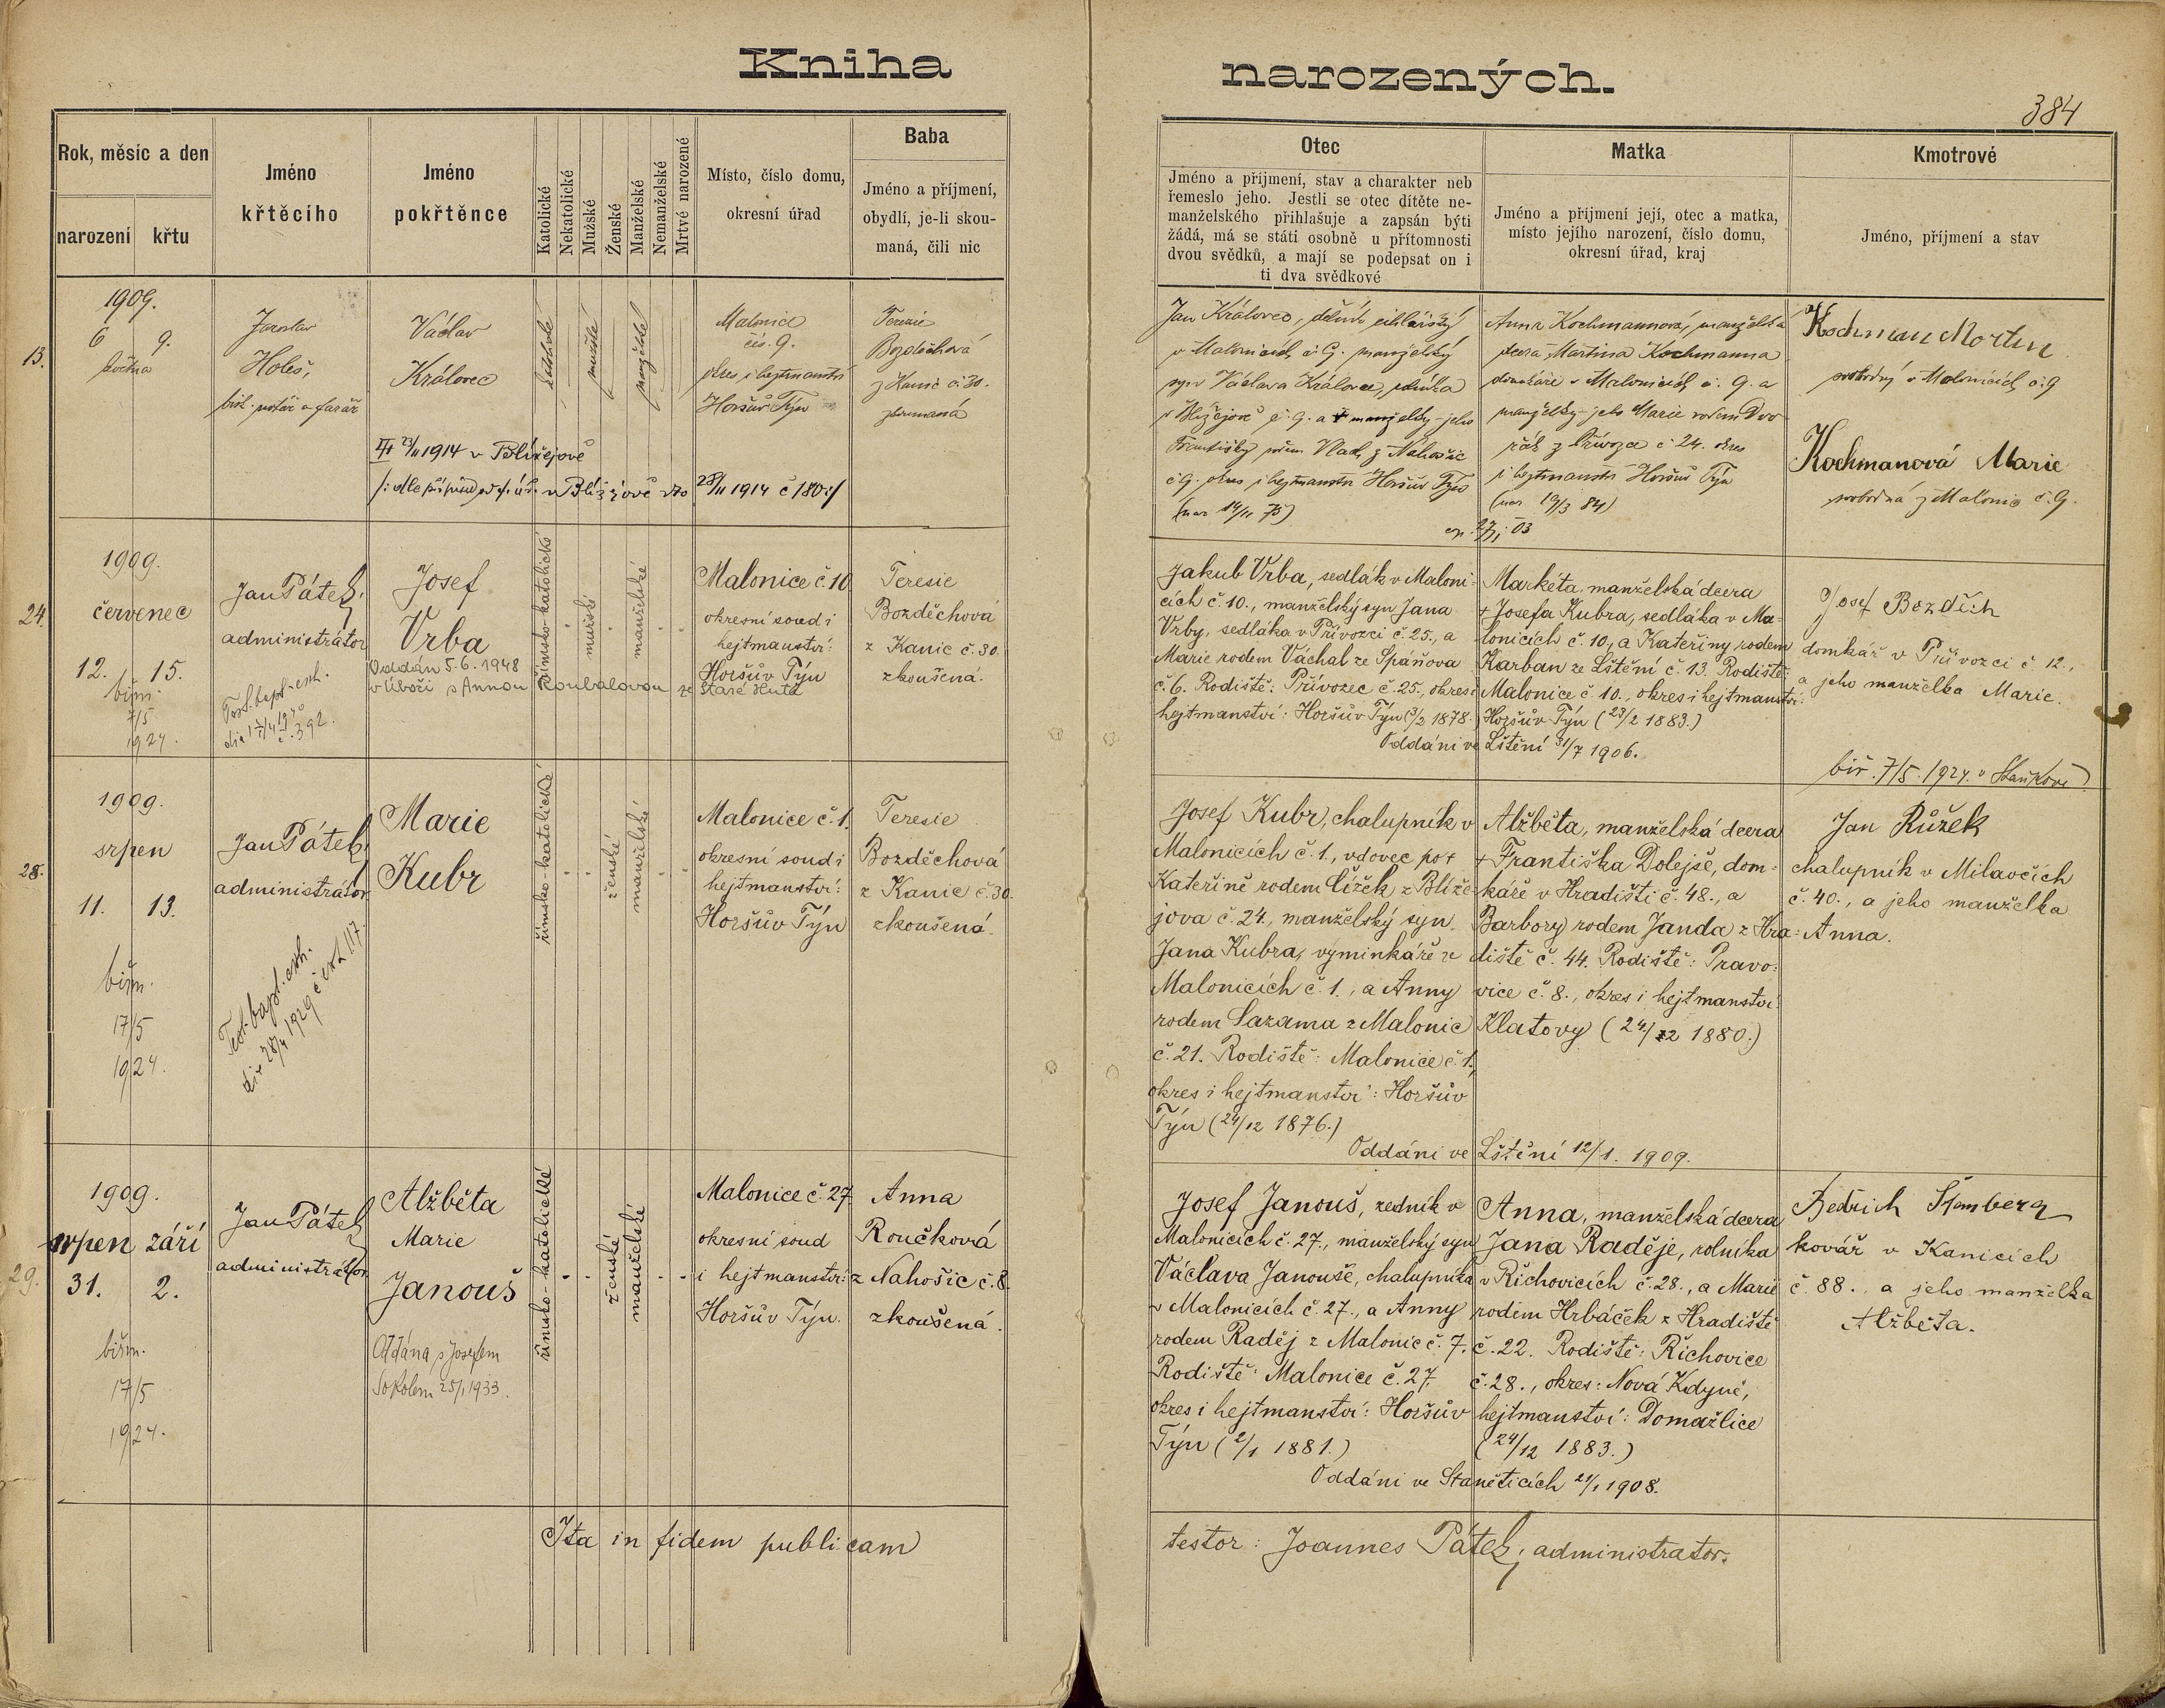 Kniha narozených.
384
Rok, měsíc a den
narození křtu
Jméno
křtěcího
Jméno
pokřtěnce
Katolické
Nekatolické
Mužské
Ženské
Manželské
Nemanželské
Mrtvé narozené
Místo, číslo domu,
okresní úřad
Baba
Jméno a příjmení,
obydlí, je-li skou-
maná, čili nic
Otec
Jméno a příjmení, stav a charakter neb
řemeslo jeho. Jestli se otec dítěte ne-
manželského přihlašuje a zapsán býti
žádá, má se státi osobně u přítomnosti
dvou svědků, a mají se podepsat on i
ti dva svědkové
Matka
Jméno a příjmení její, otec a matka,
místo jejího narození, číslo domu,
okresní úřad, kraj
Kmotrové
Jméno, příjmení a stav
13.
1909.
6 9.
května
Jaroslav
Holeš,
bisk. notář a farář
Václav
Královec
23/11 1914 v Blížejově
28/11 1914 č 180:/
katolické
mužské
manželské
Malonice
čís. 9.
okres i hejtmanství
Horšův Týn
Terezie
Bozděchová
z Kanic č. 30.
zkoumaná
Jan Královec, dělník cihlářský
v Malonicích č. 9. manželský
syn Václava Královce,
v Blížejově č. 9. a manželky jeho
Františky rodem Vlach z Nahošic
č 9. okres i hejtmanství Horšův Týn
(nar 14/11 75)
Anna Kochmannová, manželská
dcera Martina Kochmanna
domkáře v Malonicích č. 9. a
manželky jeho Marie rodem Dvo-
řák z Přívozce č 24. okres
i hejtmanství Horšův Týn
(nar. 19/3 84)
Kochman Martin
svobodný v Malonicích č. 9
Kochmanová Marie
svobodná z Malonic č. 9.
24.
1909.
červenec
12. 15.
biřm.
7/5
1924.
Jan Pátek,
administrátor
Test. bapt. exh.
die 17/4 1940
č. 392.
Josef
Vrba
Oddán 5. 6. 1948
v Úboči s Annou Roubalovou ze Staré Hutě
římsko-katolické
mužské
manželské
Malonice č. 10
okresní soud i
hejtmanství:
Horšův Týn
Teresie
Bozděchová
z Kanic č. 30.
zkoušená.
Jakub Vrba, sedlák v Maloni-
cích č. 10., manželský syn Jana
Vrby, sedláka v Přívozci č. 25., a
Marie rodem Váchal ze Spáňova
č. 6. Rodiště: Přívozec č. 25., okres i
hejtmanství: Horšův Týn (3/2 1878.)
Markéta, manželská dcera
+ Josefa Kubra, sedláka v Ma-
lonicích č. 10., a Kateřiny rodem
Karban ze Lštění č. 13. Rodiště:
Malonice č. 10., okres i hejtmanství:
Horšův Týn (23/2 1883.)
Oddáni ve Lštění 31/7 1906.
Josef Bozdĕch
domkář v Přívozci č. 12.,
a jeho manželka Marie.
biř. 7/5. 1924. v Staňkově
28.
1909.
srpen
11. 13.
biřm.
17/5
1924.
Jan Pátek,
administrátor
Test. bapt. exh.
die 28/4 1929 č exh. 117.
Marie
Kubr
římsko-katolické
ženské
manželské
Malonice č. 1.
okresní soud i
hejtmanství:
Horšův Týn
Teresie
Bozděchová
z Kanic č. 30.
zkoušená.
Josef Kubr, chalupník v
Malonicích č. 1., vdovec po +
Kateřině rodem Čížek z Blíže-
jova č. 24., manželský syn
Jana Kubra, výminkáře ve
Malonicích č. 1., a Anny
rodem Sazama z Malonic
č. 21. Rodiště: Malonice č. 1.,
okres i hejtmanství: Horšův
Týn (24/12 1876.)
Alžběta, manželská dcera
+ Františka Dolejše, dom-
káře v Hradišti č. 48., a
Barbory rodem Janda z Hra-
diště č. 44. Rodiště: Pravo-
vice č. 8., okres i hejtmanství
Klatovy (24/12 1880.)
Oddáni ve Lštění 12/1. 1909.
Jan Růžek
chalupník v Milavčích
č. 40., a jeho manželka
Anna.
29.
1909.
srpen září
31. 2.
biřm.
17/5
1924.
Jan Pátek
administrátor
Alžběta
Marie
Janouš
Oddána s Josefem
Sokolem 25/1 1933.
římsko-katolické
ženské
manželské
Malonice č. 27
okresní soud
i hejtmanství:
Horšův Týn.
Anna
Roučková
z Nahošic č. 8.
zkoušená.
Josef Janouš, zedník v
Malonicích č. 27., manželský syn
Václava Janouše, chalupníka
v Malonicích č. 27., a Anny
rodem Raděj z Malonic č. 7.
Rodiště: Malonice č. 27.
okres i hejtmanství: Horšův
Týn (2/1 1881.)
Anna, manželská dcera
Jana Raděje, rolníka
v Řichovicích č. 28., a Marie
rodem Hrbáček z Hradiště
č. 22. Rodiště: Řichovice
č. 28., okres: Nová Kdyně,
hejtmanství: Domažlice
(24/12 1883.)
Oddáni ve Staněticích 21/1 1908.
Bedřich Štamberg
kovář v Kanicích
č. 88., a jeho manželka
Alžběta.
Ita in fidem publicam
testor: Joannes Pátek, administrator.